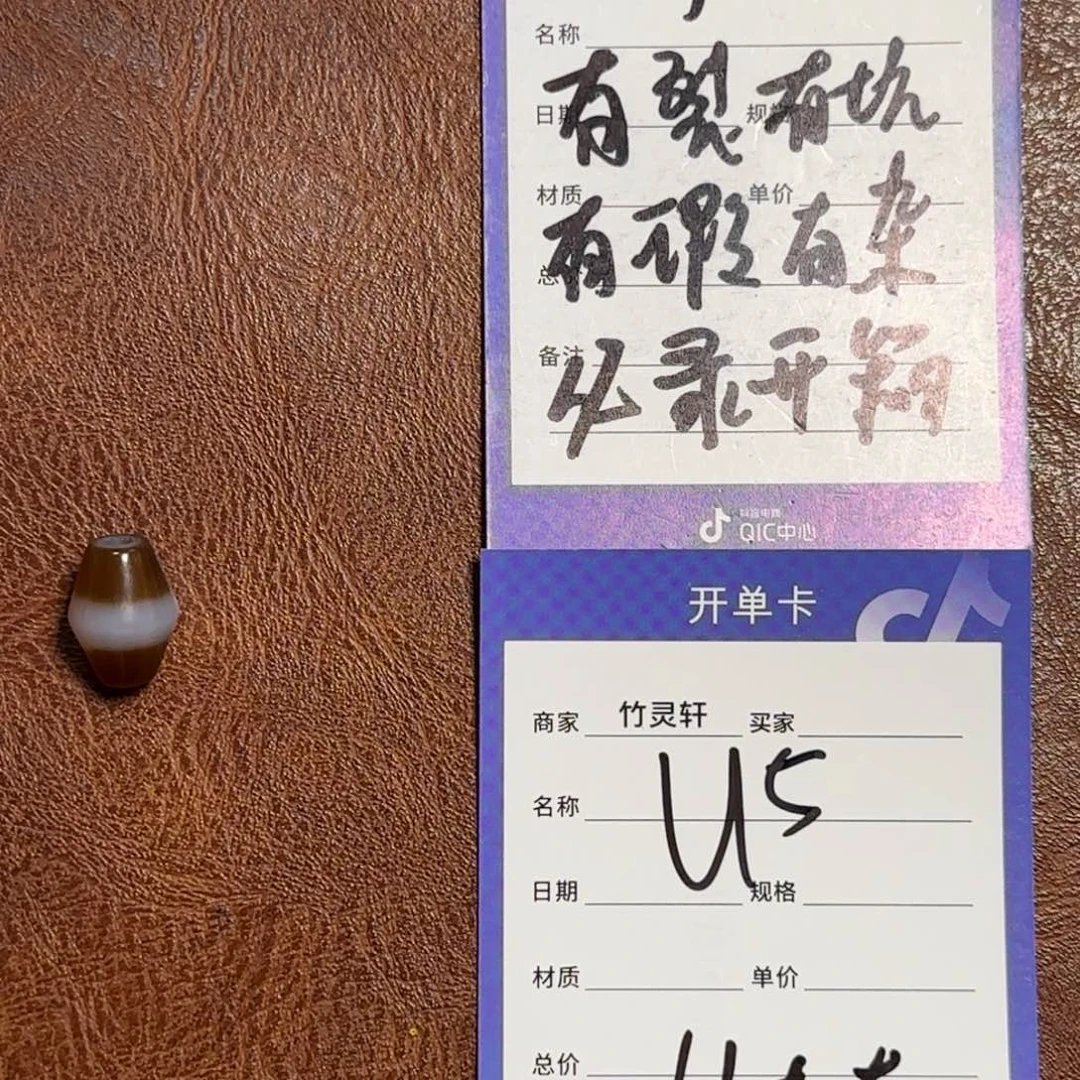 名称
有裂有坑
日期 规格
材质 单价
有瑕有杂
备注
必录开箱
抖音电商
QIC中心
开单卡
商家 竹灵轩 买家
名称
U5
日期 规格
材质 单价
总价